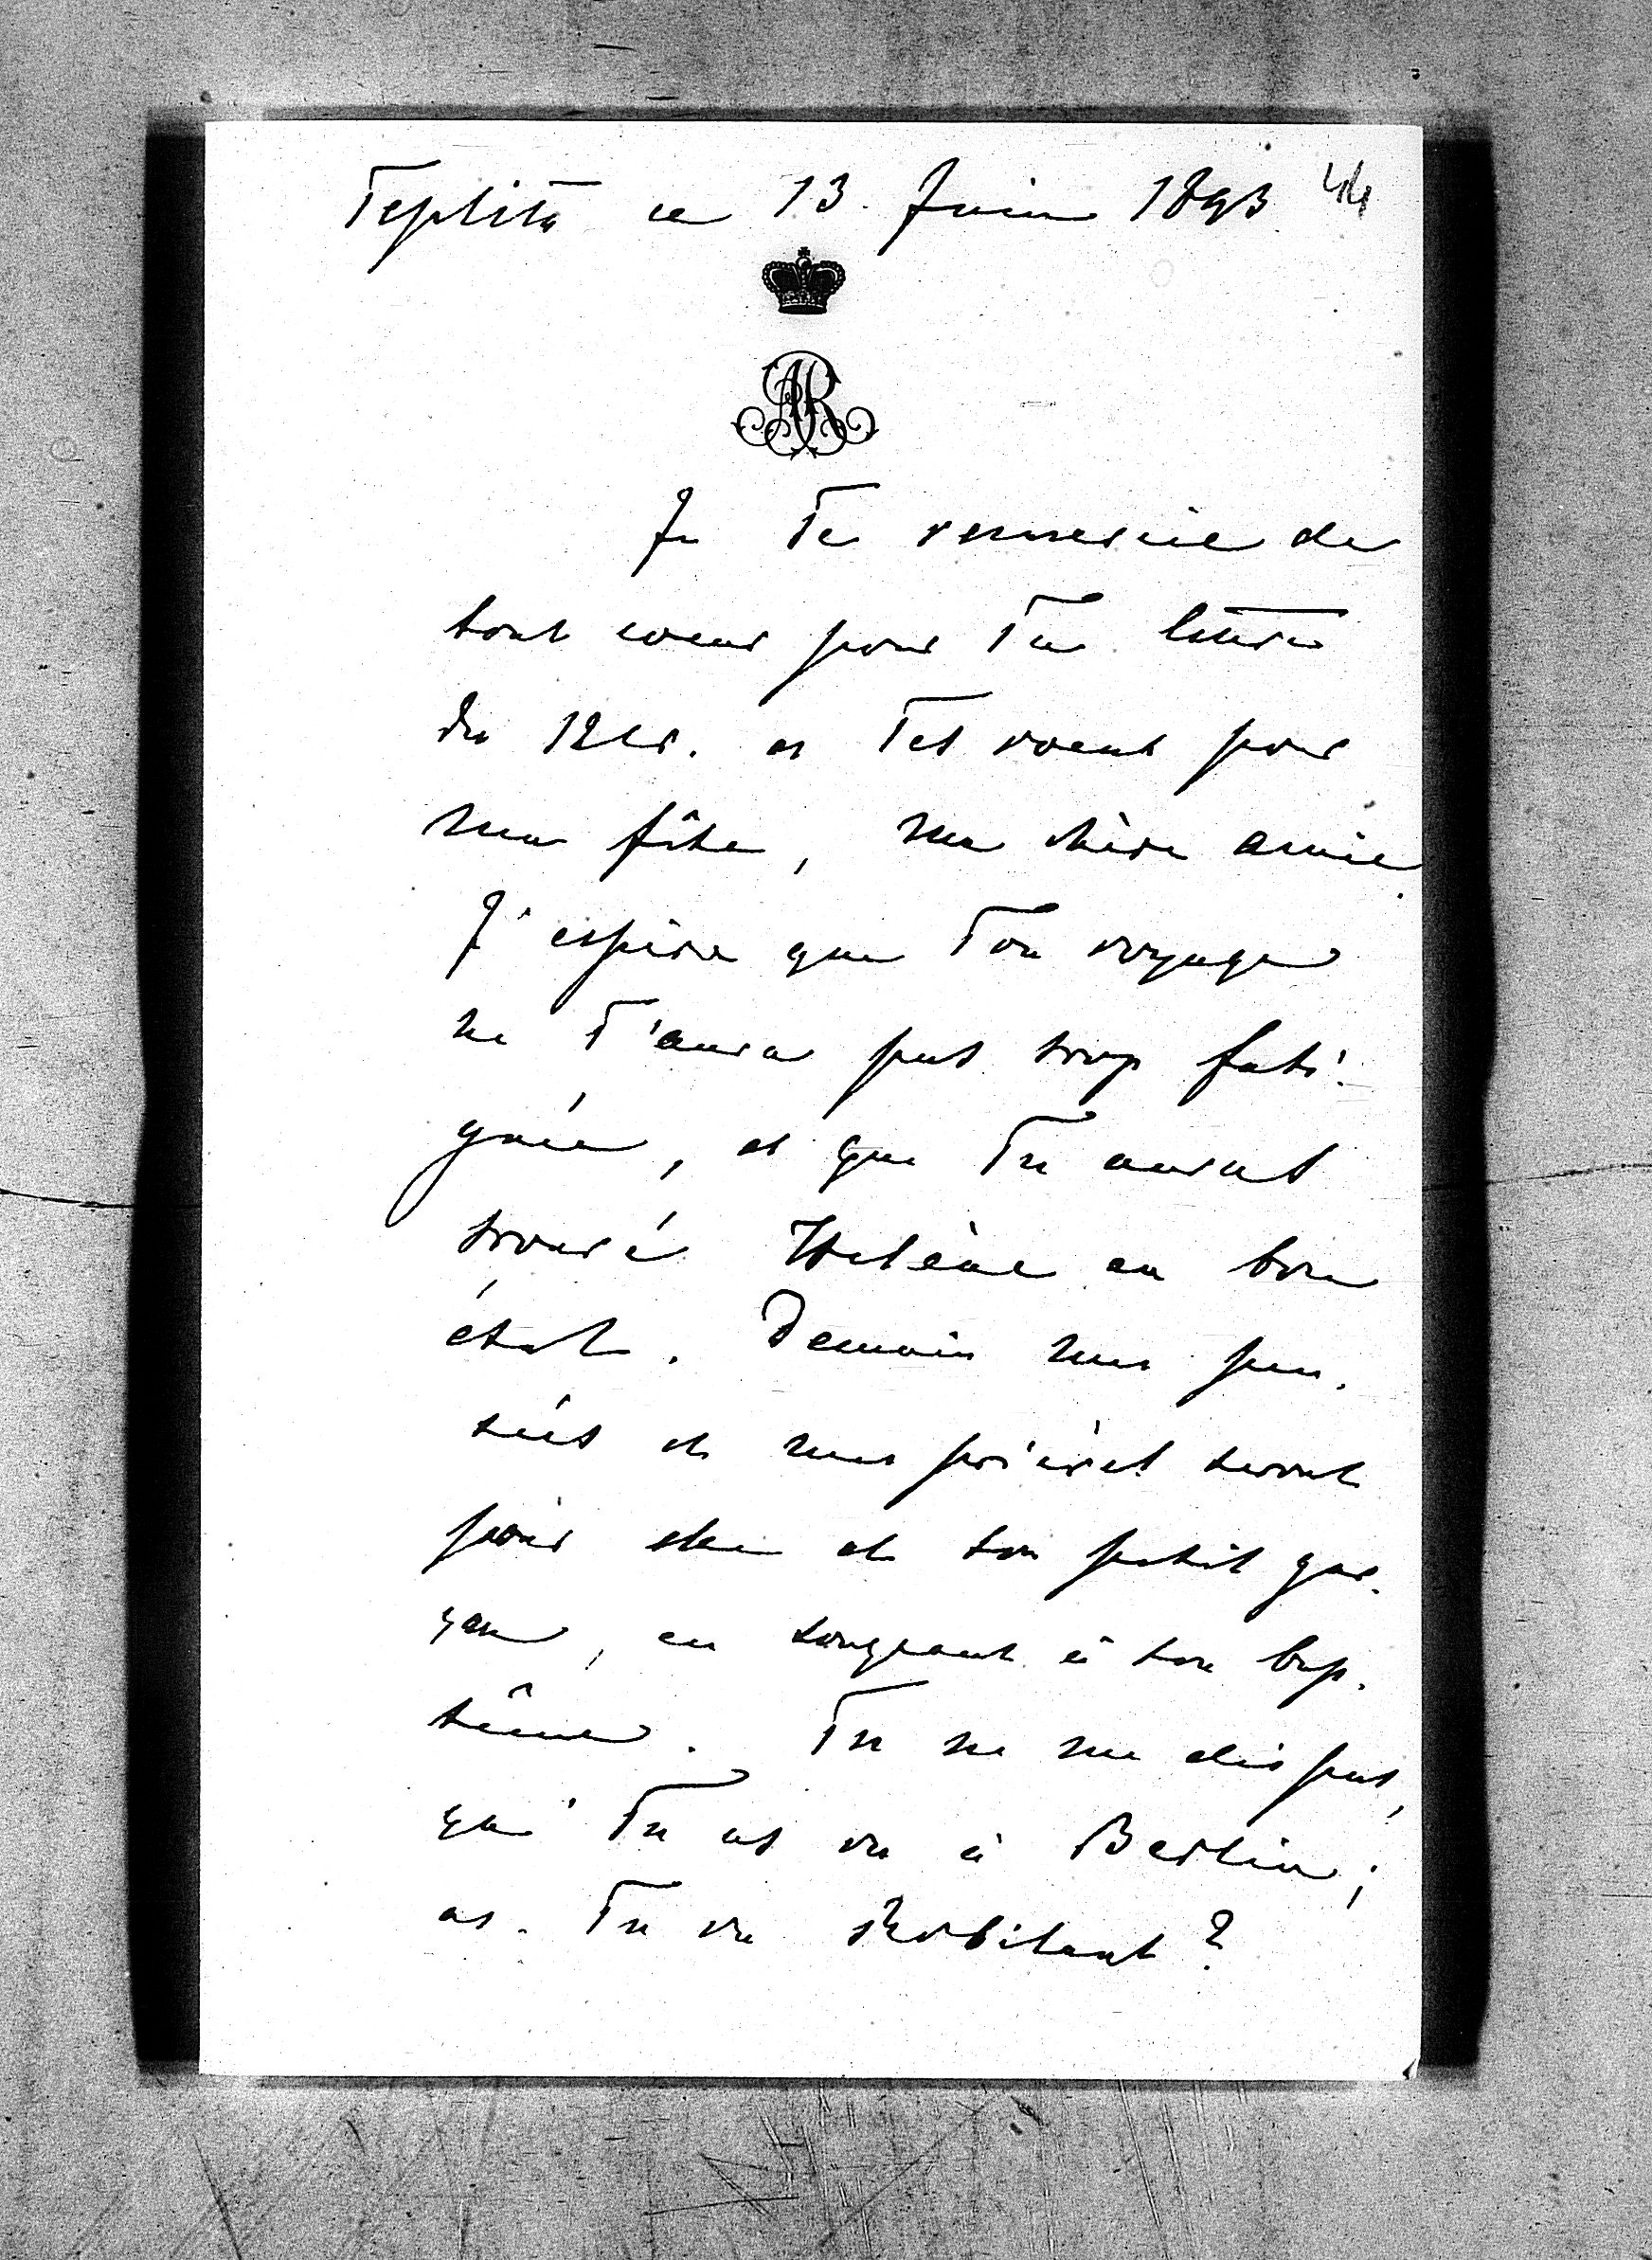 Teplitz ce 13. Juin 1893 44
AR
Je Te remercie de
tout coeur pour Ta lettre
du 12 cr. et Tes voeux pour
ma fête, ma chère amie.
J'espère que Ton voyage
ne T'aura pas trop fati-
guée, et que Tu auras
trouvé Helène en bon
état. Demain mes pen-
sées et mes prières seront
pour elle et son petit gar-
çon, en songeant à son bap-
tême. Tu ne me dis pas,
qui Tu as vu à Berlin;
as-Tu vu ?